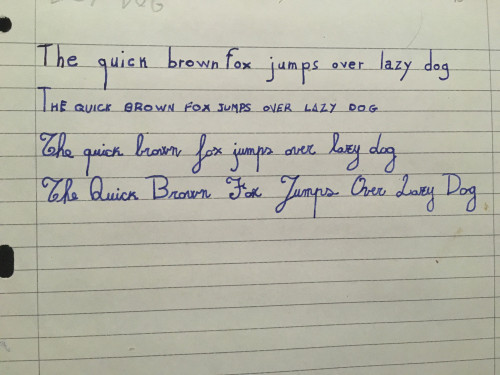 The quick brown fox jumps over lazy dog
THE QUICK BROWN FOX JUMPS OVER LAZY DOG
The quick brown fox jumps over lazy dog
The Quick Brown Fox Jumps Over Lazy Dog